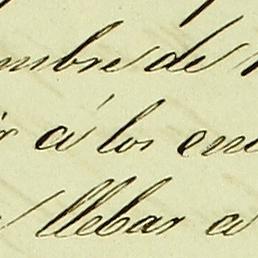 mbre de
r á los en
llebar a